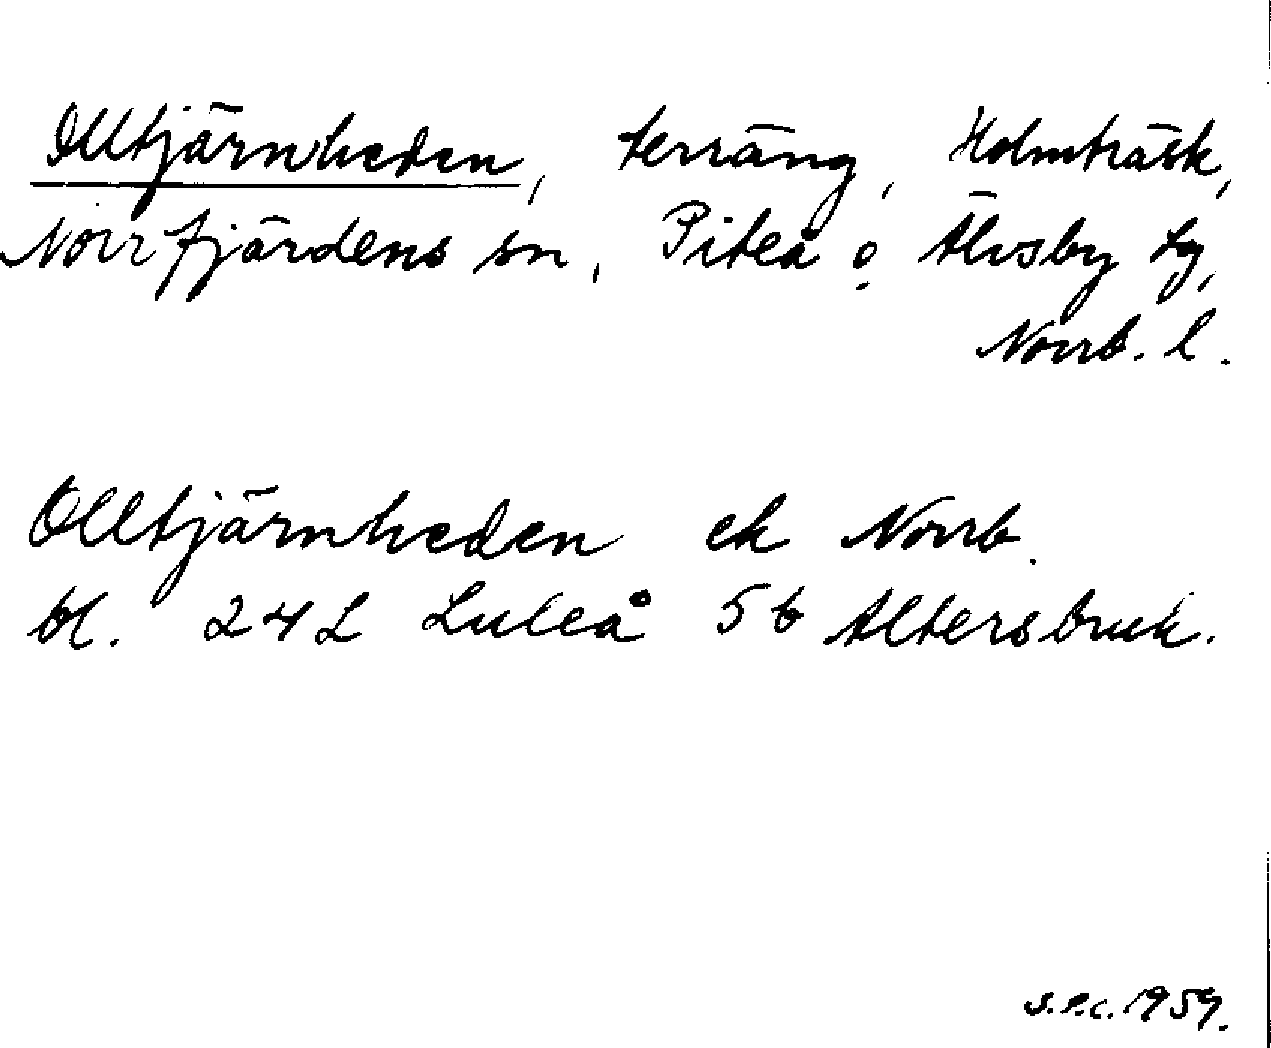 Olltjärnheden, terräng, Holmträsk,
Norrfjärdens sn, Piteå o Älvsby tg,
Norrb. l.
Olltjärnheden ek Norrb.
bl. 24L Luleå 5b Altersbruk.
s.e.c. 1959.